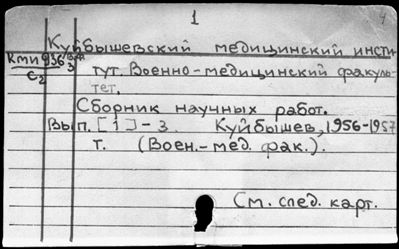 1
Куйбышевский медицинский инсти-
тут. Военно-медицинский факуль-
тет.
Сборник научных работ.
Вып. [1]-3. Куйбышев, 1956-1957
т. (Воен.-мед. фак.).
См. след. карт.